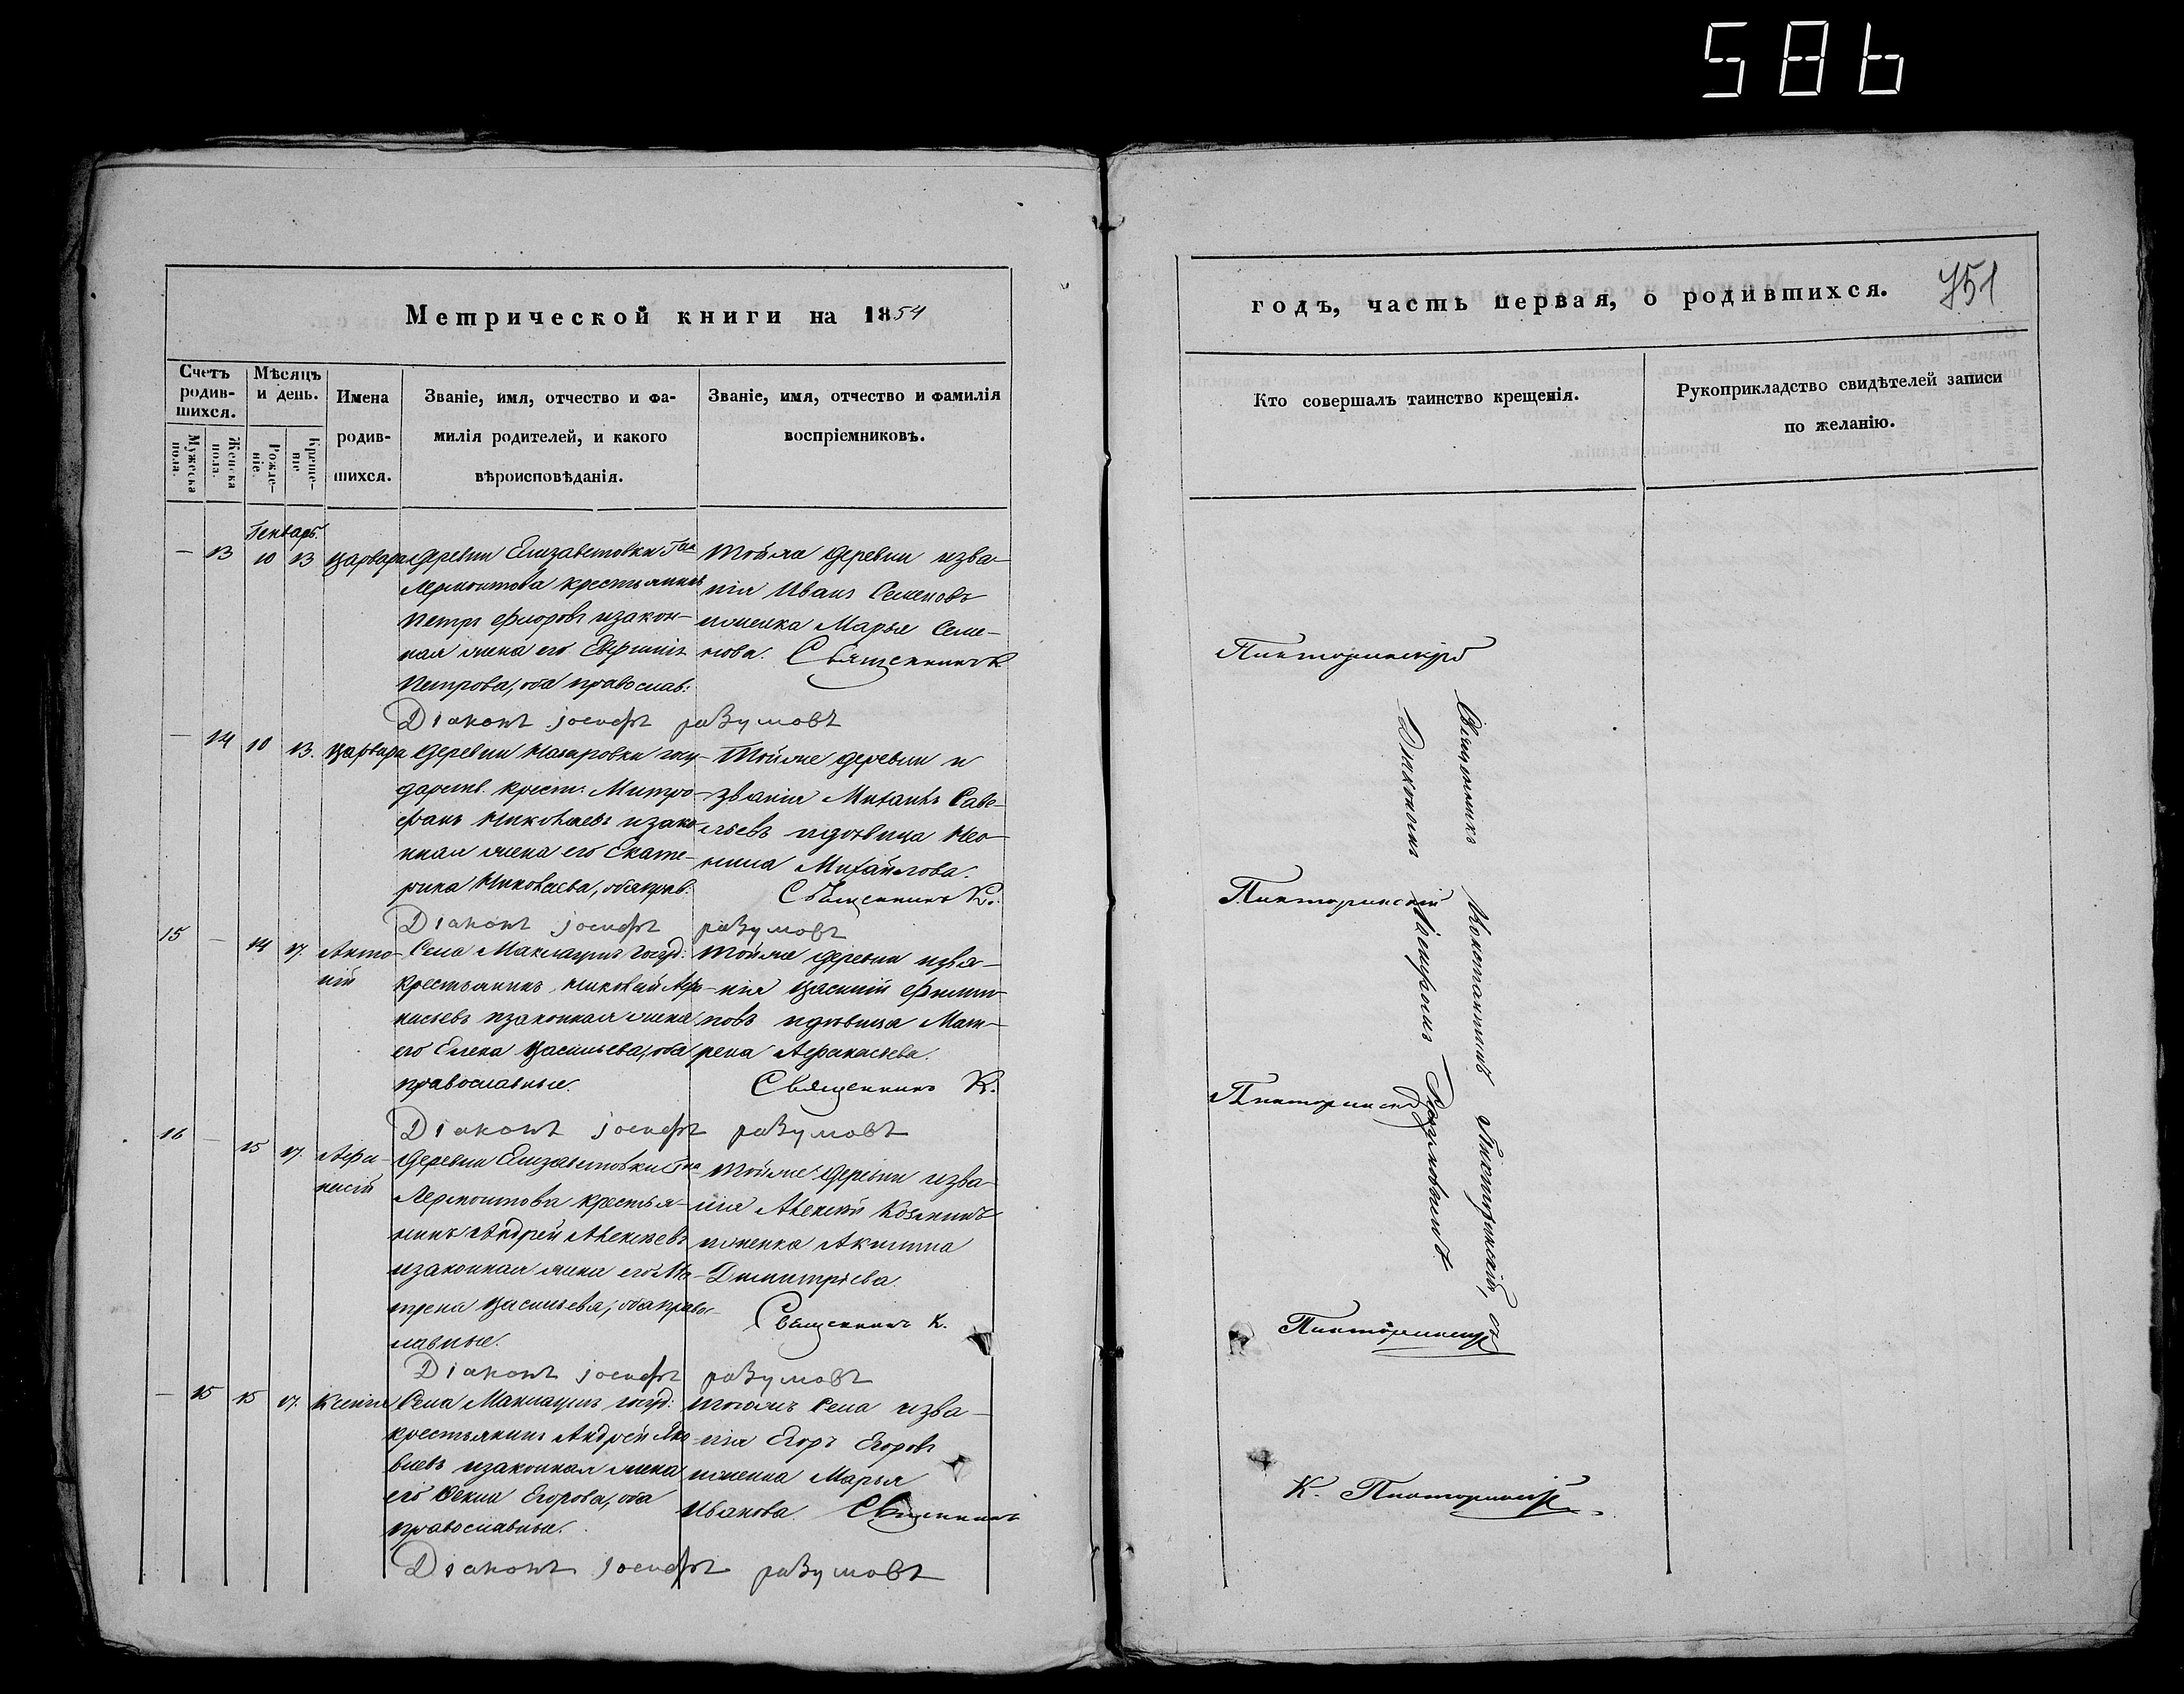 586
Метрической книги на 1854
Счетъ родив-шихся.
Мужеска пола.
Женска пола.
Мѣсяцъ и день.
Рожде-ніе.
Креще-ніе
Имена
родив-
шихся.
Званіе, имя, отчество и фа-
милія родителей, и какого
вѣроисповѣданія.
Званіе, имя, отчество и фамилія
воспріемниковъ.
Генварь.
— 13 10 13 Варвара
деревни Елизаветовки Гна
Лермонтова крестьянинъ
Петръ изакон-
ная жена его
Петрова, оба православ:
Тойже деревни изва-
нія Иванъ Семеновъ
иженка Марья Семе-
нова. Священникъ
Діаконъ Іосифъ разумовъ
— 14 10 13. Варвара
деревни Назаровки госу-
дарств. крест. Митро-
фанъ Николаевъ изако
нная жена его Екате-
рина Николаева, оба прав.
Тойже деревни и
званія Михаилъ Саве-
льевъ идѣвица Нео-
нила Михайлова.
Священникъ К.
Діаконъ Іосифъ разумовъ
15 — 14 17. Анто-
ній
Села Маклацъ госуд:
крестьянинъ Николай Афо-
насьевъ изаконная жена
его Елена Васильева, оба
православные.
Тойже деревни изва-
нія Василій Филип-
повъ идѣвица Мат-
рена Афанасьева.
Священникъ К.
Діаконъ Іосифъ разумовъ
16 — 15 17. Афа-
насій
деревни Елизаветовки Гна
Лермонтова крестья-
нинъ Андрей Алексѣевъ
изаконная жена его Ма-
трена Васильева, оба правос-
лавные.
Тойже деревни изва-
нія Алексѣй Козминъ
иженка Акилина
Димитріева.
Священникъ К.
Діаконъ Іосифъ разумовъ
— 15 15 17. Ксенія
Села Маклацъ госуд:
крестьянинъ Андрей Яко
влевъ изаконная жена
его Фекла Егорова, оба
православные.
тогожъ Села изва-
нія Егоръ Егоровъ
иженка Марья
Иванова. Священникъ
Діаконъ Іосифъ разумовъ
годъ, часть первая, о родившихся.
751
Кто совершалъ таинство крещенія.
Рукоприкладство свидѣтелей записи
по желанію.
Пикторинскій
Пикторинскій
Пикторинскій
Пикторинскій
К. Пикторинскій
Священникъ Константинъ Пикторинскій, съ
Діакономъ Іосифомъ Разумовымъ